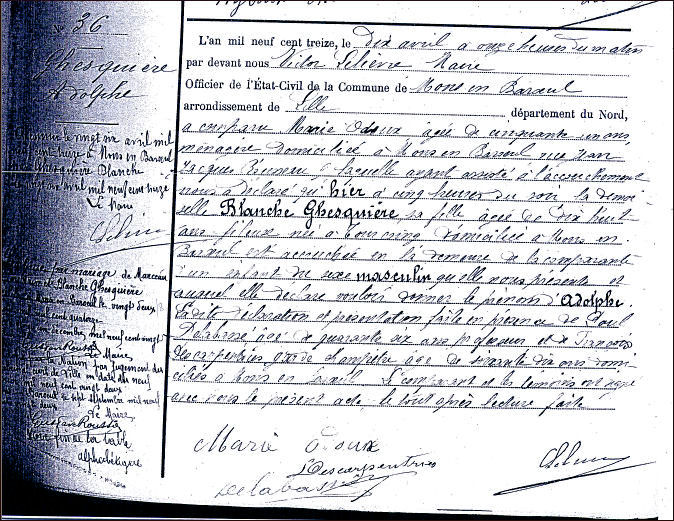 N° 36
Ghesquière
Adolphe
L'an mil neuf cent treize, le dix avril à onze heures du matin
par devant nous Victor Lelièvre Maire
Officier de l'État-Civil de la Commune de Mons en Barœul
arrondissement de Lille département du Nord,
a comparu Marie Odoux âgée de cinquante un ans,
ménagère domiciliée à Mons en Barœul rue Jean
Jacques Rousseau, laquelle ayant assisté à l'accouchement
nous a déclaré qu'hier à cinq heures du soir la demoi-
selle Blanche Ghesquière sa fille âgée de dix huit
ans fileuse née à Tourcoing domiciliée à Mons en
Barœul est accouchée en la demeure de la comparante
d'un enfant du sexe masculin qu'elle nous présente et
auquel elle déclare vouloir donner le prénom d'Adolphe.
Ladite déclaration et présentation faite en présence de Paul
âgé de quarante six ans professeur et de François
Descarpentries garde champêtre âgé de soixante dix ans domi-
ciliés à Mons en Barœul. Le comparant et les témoins ont signé
avec nous le présent acte, le tout après lecture faite.
avril mil
cent treize à Mons en Barœul
Ghesquière Blanche
avril mil neuf cent treize
Le Maire
mariage de Marceau
et Blanche Ghesquière
Barœul le vingt deux
cent quatorze
décembre mil neuf cent vingt
Le Maire,
par jugement du
de Lille en date du neuf
mil neuf cent vingt deux
Barœul le sept septembre mil neuf
deux
Le Maire,
Gustave Roussin
la table
alphabétique
Marie Odoux
Descarpentries